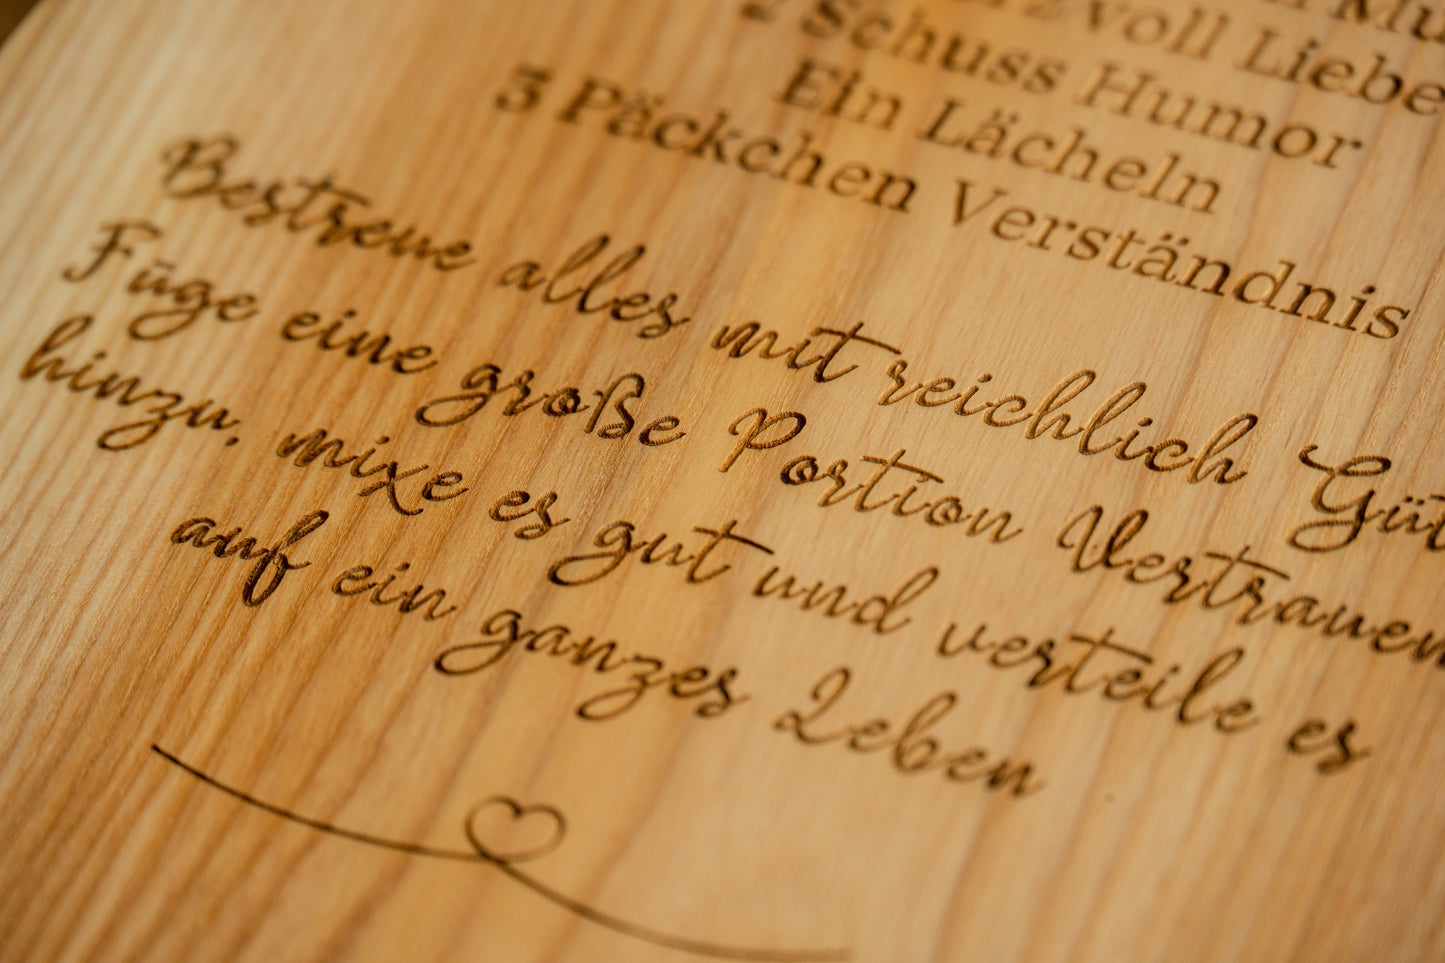 voll Liebe
2 Schuss Humor
Ein Lächeln
3 Päckchen Verständnis
Bestreue alles mit reichlich Güt
Füge eine große Portion Vertrauen
hinzu, mixe es gut und verteile es
auf ein ganzes Leben